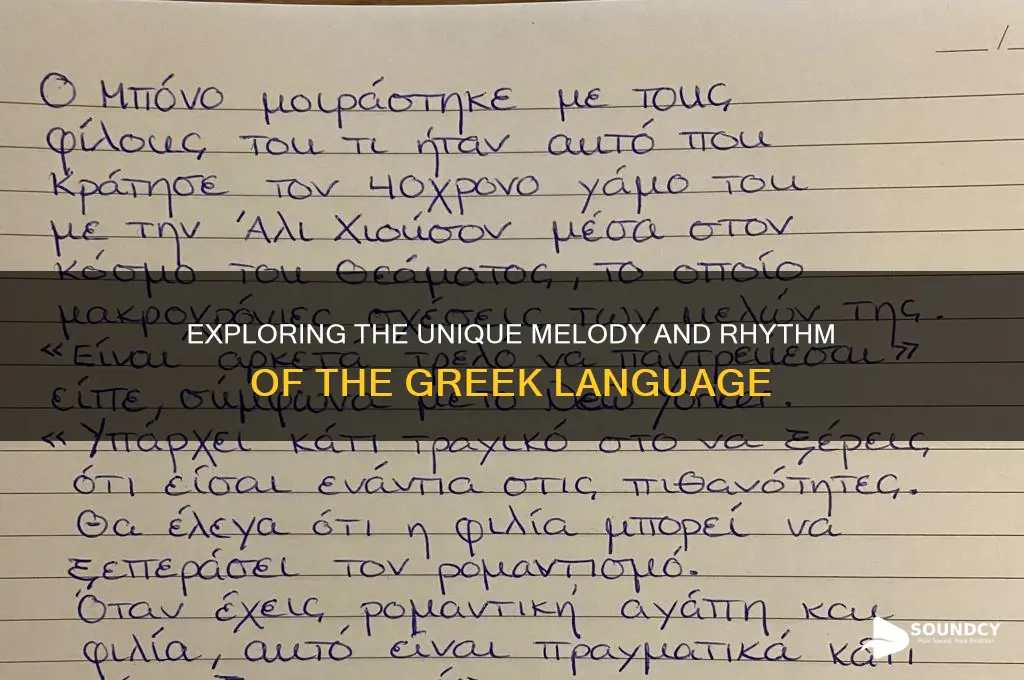 Ο Μπόνο μοιράστηκε με τους
φίλους του τι ήταν αυτό που
Κράτησε τον 40χρονο γάμο του
με την Άλι Χιούσον μέσα στον
κόσμο του θεάματος, το οποίο
μακροχρόνιες σχέσεις των μελών της.
EXPLORING THE UNIQUE MELODY AND RHYTHM
«Είναι αρκετά τρελό να παντρεύεσαι»
OF THE GREEK LANGUAGE
είπε, σύμφωνα με το New Yorker.
«Υπάρχει κάτι τραγικό στο να ξέρεις
ότι είσαι ενάντια στις πιθανότητες.
Θα έλεγα ότι η φιλία μπορεί να
ξεπεράσει τον ρομαντισμό.
Όταν έχεις ρομαντική αγάπη και
φιλία, αυτό είναι πραγματικά κάτι
SOUNDCY